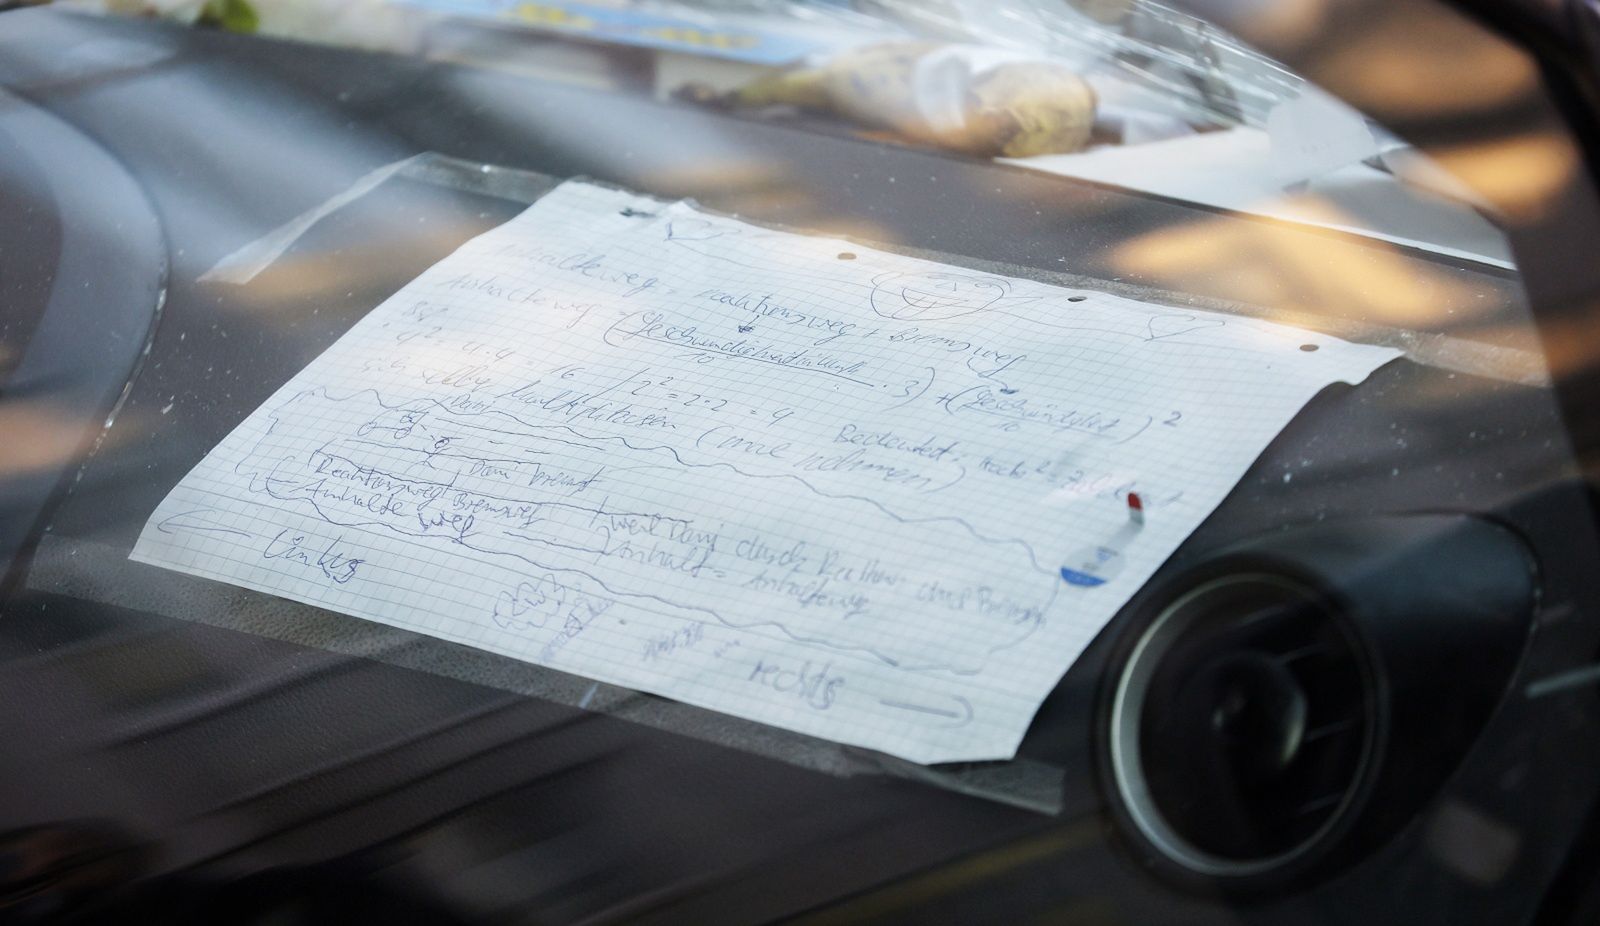 Anhalteweg = Reaktionsweg + Bremsweg
Anhalteweg = (Geschwindigkeit in km/h / 10 · 3) + (Geschwindigkeit / 10)²
4² = 4·4 = 16 / 2² = 2·2 = 4 Bedeutet: hoch² =
selby Multiplizieren (mal nehmen)
Dani
Dani bremst
Reaktionsweg Bremsweg
Anhalteweg
weil Dani durch Reaktions und Bremsweg
Anhalt = Anhalteweg
Links
rechts